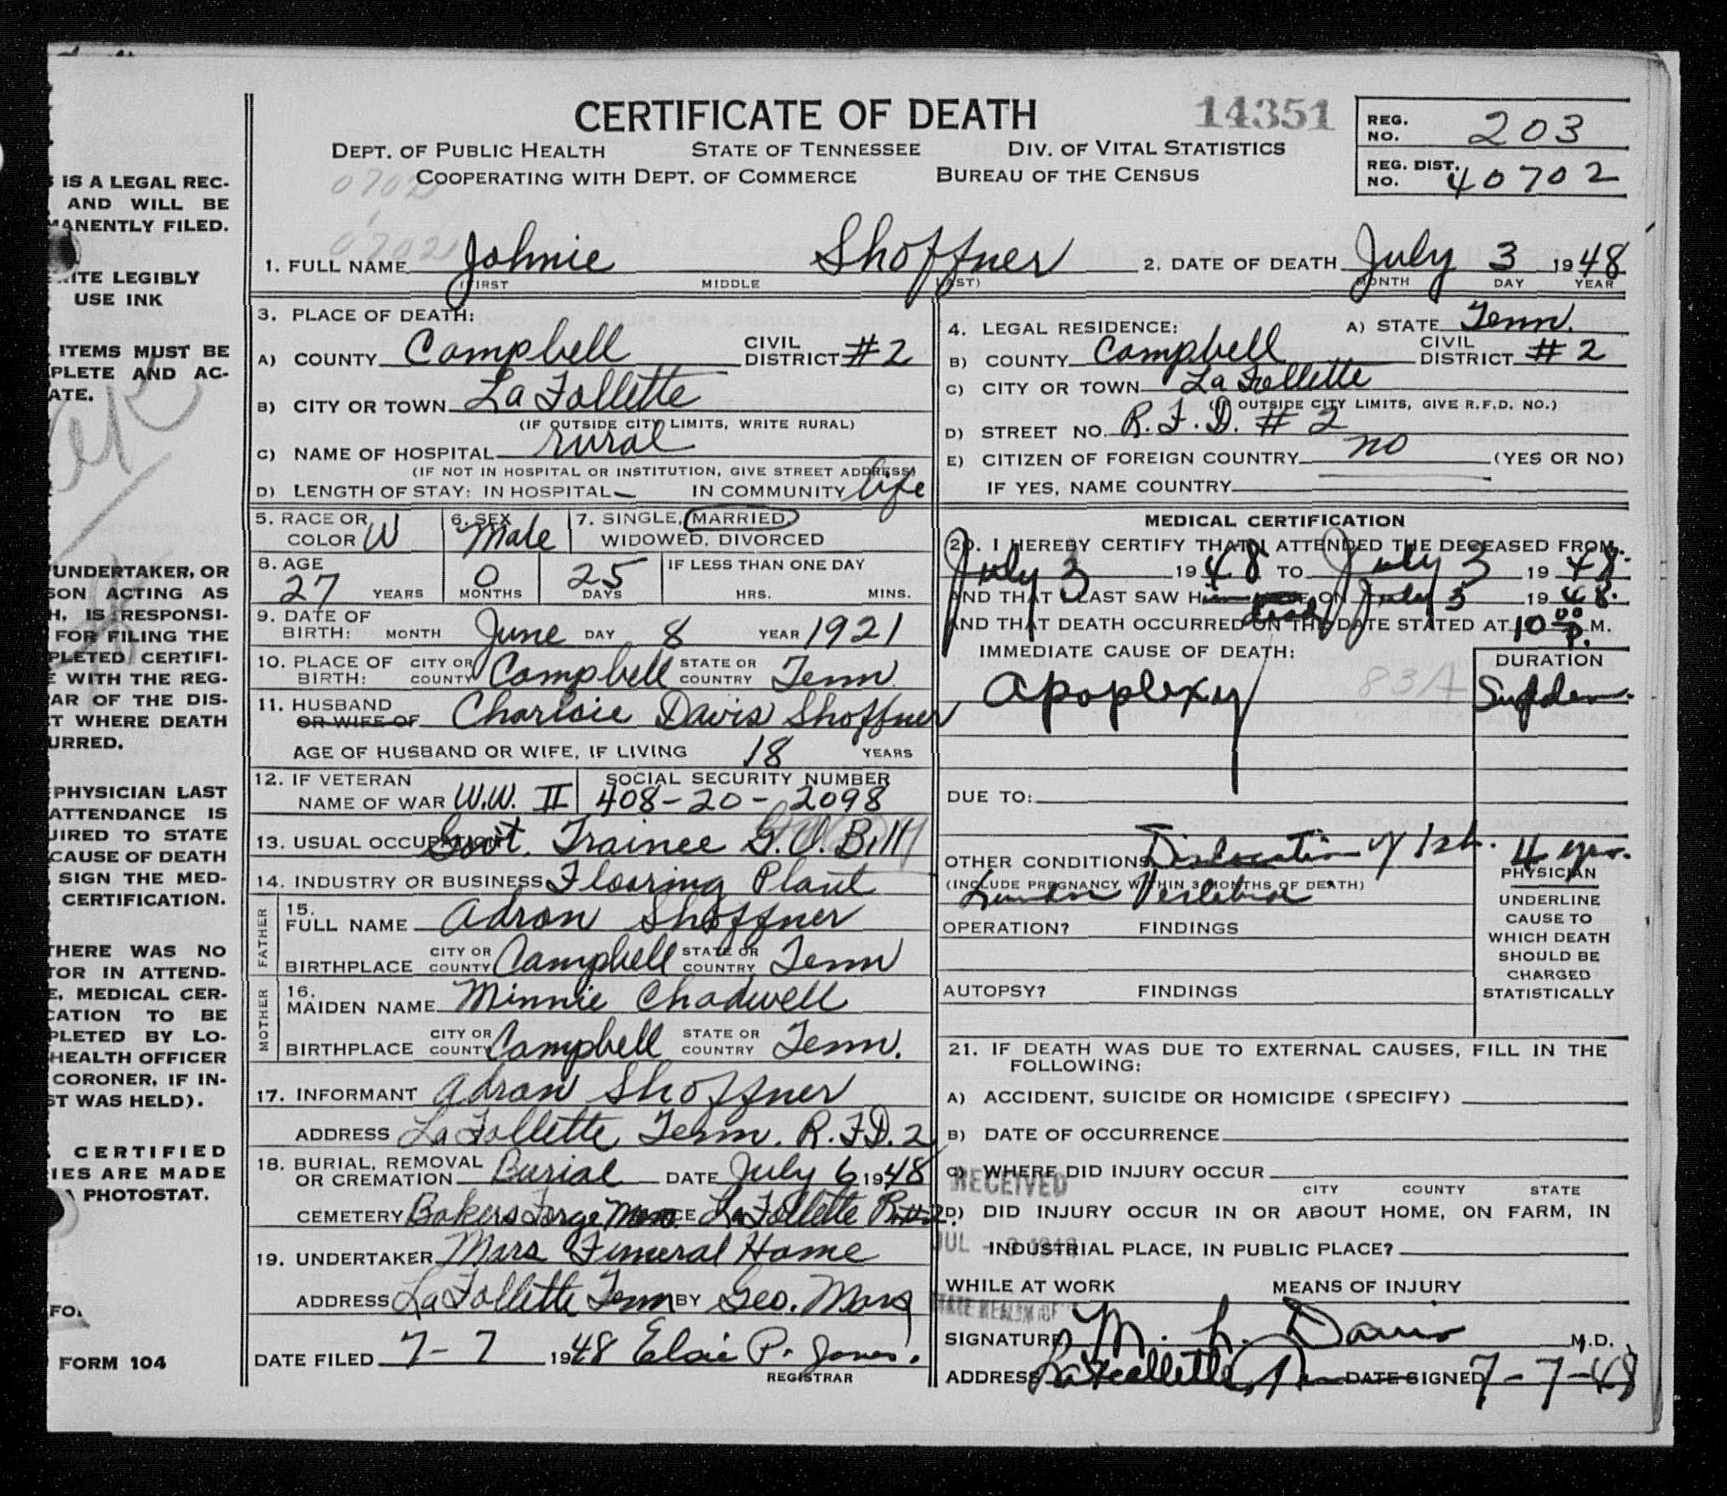 CERTIFICATE OF DEATH
14351
DEPT. OF PUBLIC HEALTH STATE OF TENNESSEE DIV. OF VITAL STATISTICS
COOPERATING WITH DEPT. OF COMMERCE BUREAU OF THE CENSUS
REG. NO. 203
REG. DIST. NO. 40702
07021
07021
S IS A LEGAL REC-
AND WILL BE
MANENTLY FILED.
RITE LEGIBLY
USE INK
ITEMS MUST BE
PLETE AND AC-
ATE.
UNDERTAKER, OR
SON ACTING AS
H, IS RESPONSI-
FOR FILING THE
PLETED CERTIFI-
E WITH THE REG-
AR OF THE DIS-
T WHERE DEATH
URRED.
PHYSICIAN LAST
ATTENDANCE IS
UIRED TO STATE
CAUSE OF DEATH
SIGN THE MED-
CERTIFICATION.
THERE WAS NO
TOR IN ATTEND-
E, MEDICAL CER-
CATION TO BE
PLETED BY LO-
HEALTH OFFICER
CORONER, IF IN-
ST WAS HELD).
CERTIFIED
IES ARE MADE
PHOTOSTAT.
FO
FORM 104
1. FULL NAME Johnie Shoffner 2. DATE OF DEATH July 3 1948
(FIRST MIDDLE LAST) MONTH DAY YEAR
3. PLACE OF DEATH:
A) COUNTY Campbell CIVIL DISTRICT #2
B) CITY OR TOWN La Follette
(IF OUTSIDE CITY LIMITS, WRITE RURAL)
C) NAME OF HOSPITAL rural
(IF NOT IN HOSPITAL OR INSTITUTION, GIVE STREET ADDRESS)
D) LENGTH OF STAY: IN HOSPITAL — IN COMMUNITY life
4. LEGAL RESIDENCE: A) STATE Tenn.
B) COUNTY Campbell CIVIL DISTRICT #2
C) CITY OR TOWN La Follette
OUTSIDE CITY LIMITS, GIVE R.F.D. NO.)
D) STREET NO. R.F.D. #2
E) CITIZEN OF FOREIGN COUNTRY no (YES OR NO)
IF YES, NAME COUNTRY
5. RACE OR COLOR W 6. SEX Male 7. SINGLE, MARRIED, WIDOWED, DIVORCED
8. AGE 27 YEARS 0 MONTHS 25 DAYS IF LESS THAN ONE DAY HRS. MINS.
9. DATE OF BIRTH: MONTH June DAY 8 YEAR 1921
10. PLACE OF BIRTH: CITY OR COUNTY Campbell STATE OR COUNTRY Tenn
11. HUSBAND OR WIFE OF Charlsie Davis Shoffner
AGE OF HUSBAND OR WIFE, IF LIVING 18 YEARS
12. IF VETERAN NAME OF WAR W.W. II SOCIAL SECURITY NUMBER 408-20-2098
13. USUAL OCCUPATION Govt. Trainee G.I. Bill
14. INDUSTRY OR BUSINESS Flooring Plant
FATHER
15. FULL NAME Adron Shoffner
BIRTHPLACE CITY OR COUNTY Campbell STATE OR COUNTRY Tenn
MOTHER
16. MAIDEN NAME Minnie Chadwell
BIRTHPLACE CITY OR COUNTY Campbell STATE OR COUNTRY Tenn.
17. INFORMANT Adron Shoffner
ADDRESS La Follette Tenn. R.F.D. 2
18. BURIAL, REMOVAL OR CREMATION Burial DATE July 6 1948
CEMETERY Bakers Forge La Follette R#2
19. UNDERTAKER Mars Funeral Home
ADDRESS La Follette Tenn BY Geo. Mars
DATE FILED 7-7 1948 Elsie P. Jones.
REGISTRAR
MEDICAL CERTIFICATION
20. I HEREBY CERTIFY THAT I ATTENDED THE DECEASED FROM
July 3 1948 TO July 3 1948.
AND THAT I LAST SAW H dead ON July 3 1948.
AND THAT DEATH OCCURRED ON THE DATE STATED AT 10 00 P. M.
IMMEDIATE CAUSE OF DEATH: 83A DURATION
Apoplexy Sudden.
DUE TO:
OTHER CONDITIONS Dislocation of 1st. 4 yrs.
(INCLUDE PREGNANCY WITHIN 3 MONTHS OF DEATH)
Lumbar Vertebrae
PHYSICIAN
UNDERLINE
CAUSE TO
WHICH DEATH
SHOULD BE
CHARGED
STATISTICALLY
OPERATION? FINDINGS
AUTOPSY? FINDINGS
21. IF DEATH WAS DUE TO EXTERNAL CAUSES, FILL IN THE
FOLLOWING:
A) ACCIDENT, SUICIDE OR HOMICIDE (SPECIFY)
B) DATE OF OCCURRENCE
C) WHERE DID INJURY OCCUR
CITY COUNTY STATE
RECEIVED
D) DID INJURY OCCUR IN OR ABOUT HOME, ON FARM, IN
INDUSTRIAL PLACE, IN PUBLIC PLACE?
JUL
WHILE AT WORK MEANS OF INJURY
STATE HEALTH
SIGNATURE M. L. Davis M.D.
ADDRESS La Follette, Tenn DATE SIGNED 7-7-48